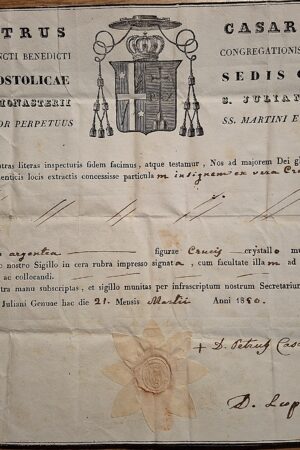 TRUS CASAR
NCTI BENEDICTI CONGREGATIONIS
OSTOLICAE SEDIS G
MONASTERII S. JULIAN
OR PERPETUUS SS. MARTINI E
tras literas inspecturis fidem facimus, atque testamur, Nos ad majorem Dei gl
enticis locis extractis concessisse particulam insignem ex vera Cru
argentea figurae Crucis crystallo mu
o nostro Sigillo in cera rubra impresso signata, cum facultate illam ad
ac collocandi.
tra manu subscriptas, et sigillo munitas per infrascriptum nostrum Secretarium
Juliani Genuae hac die 21. Mensis Martii Anni 1850.
+ D. Petrus Cas
D. Lup